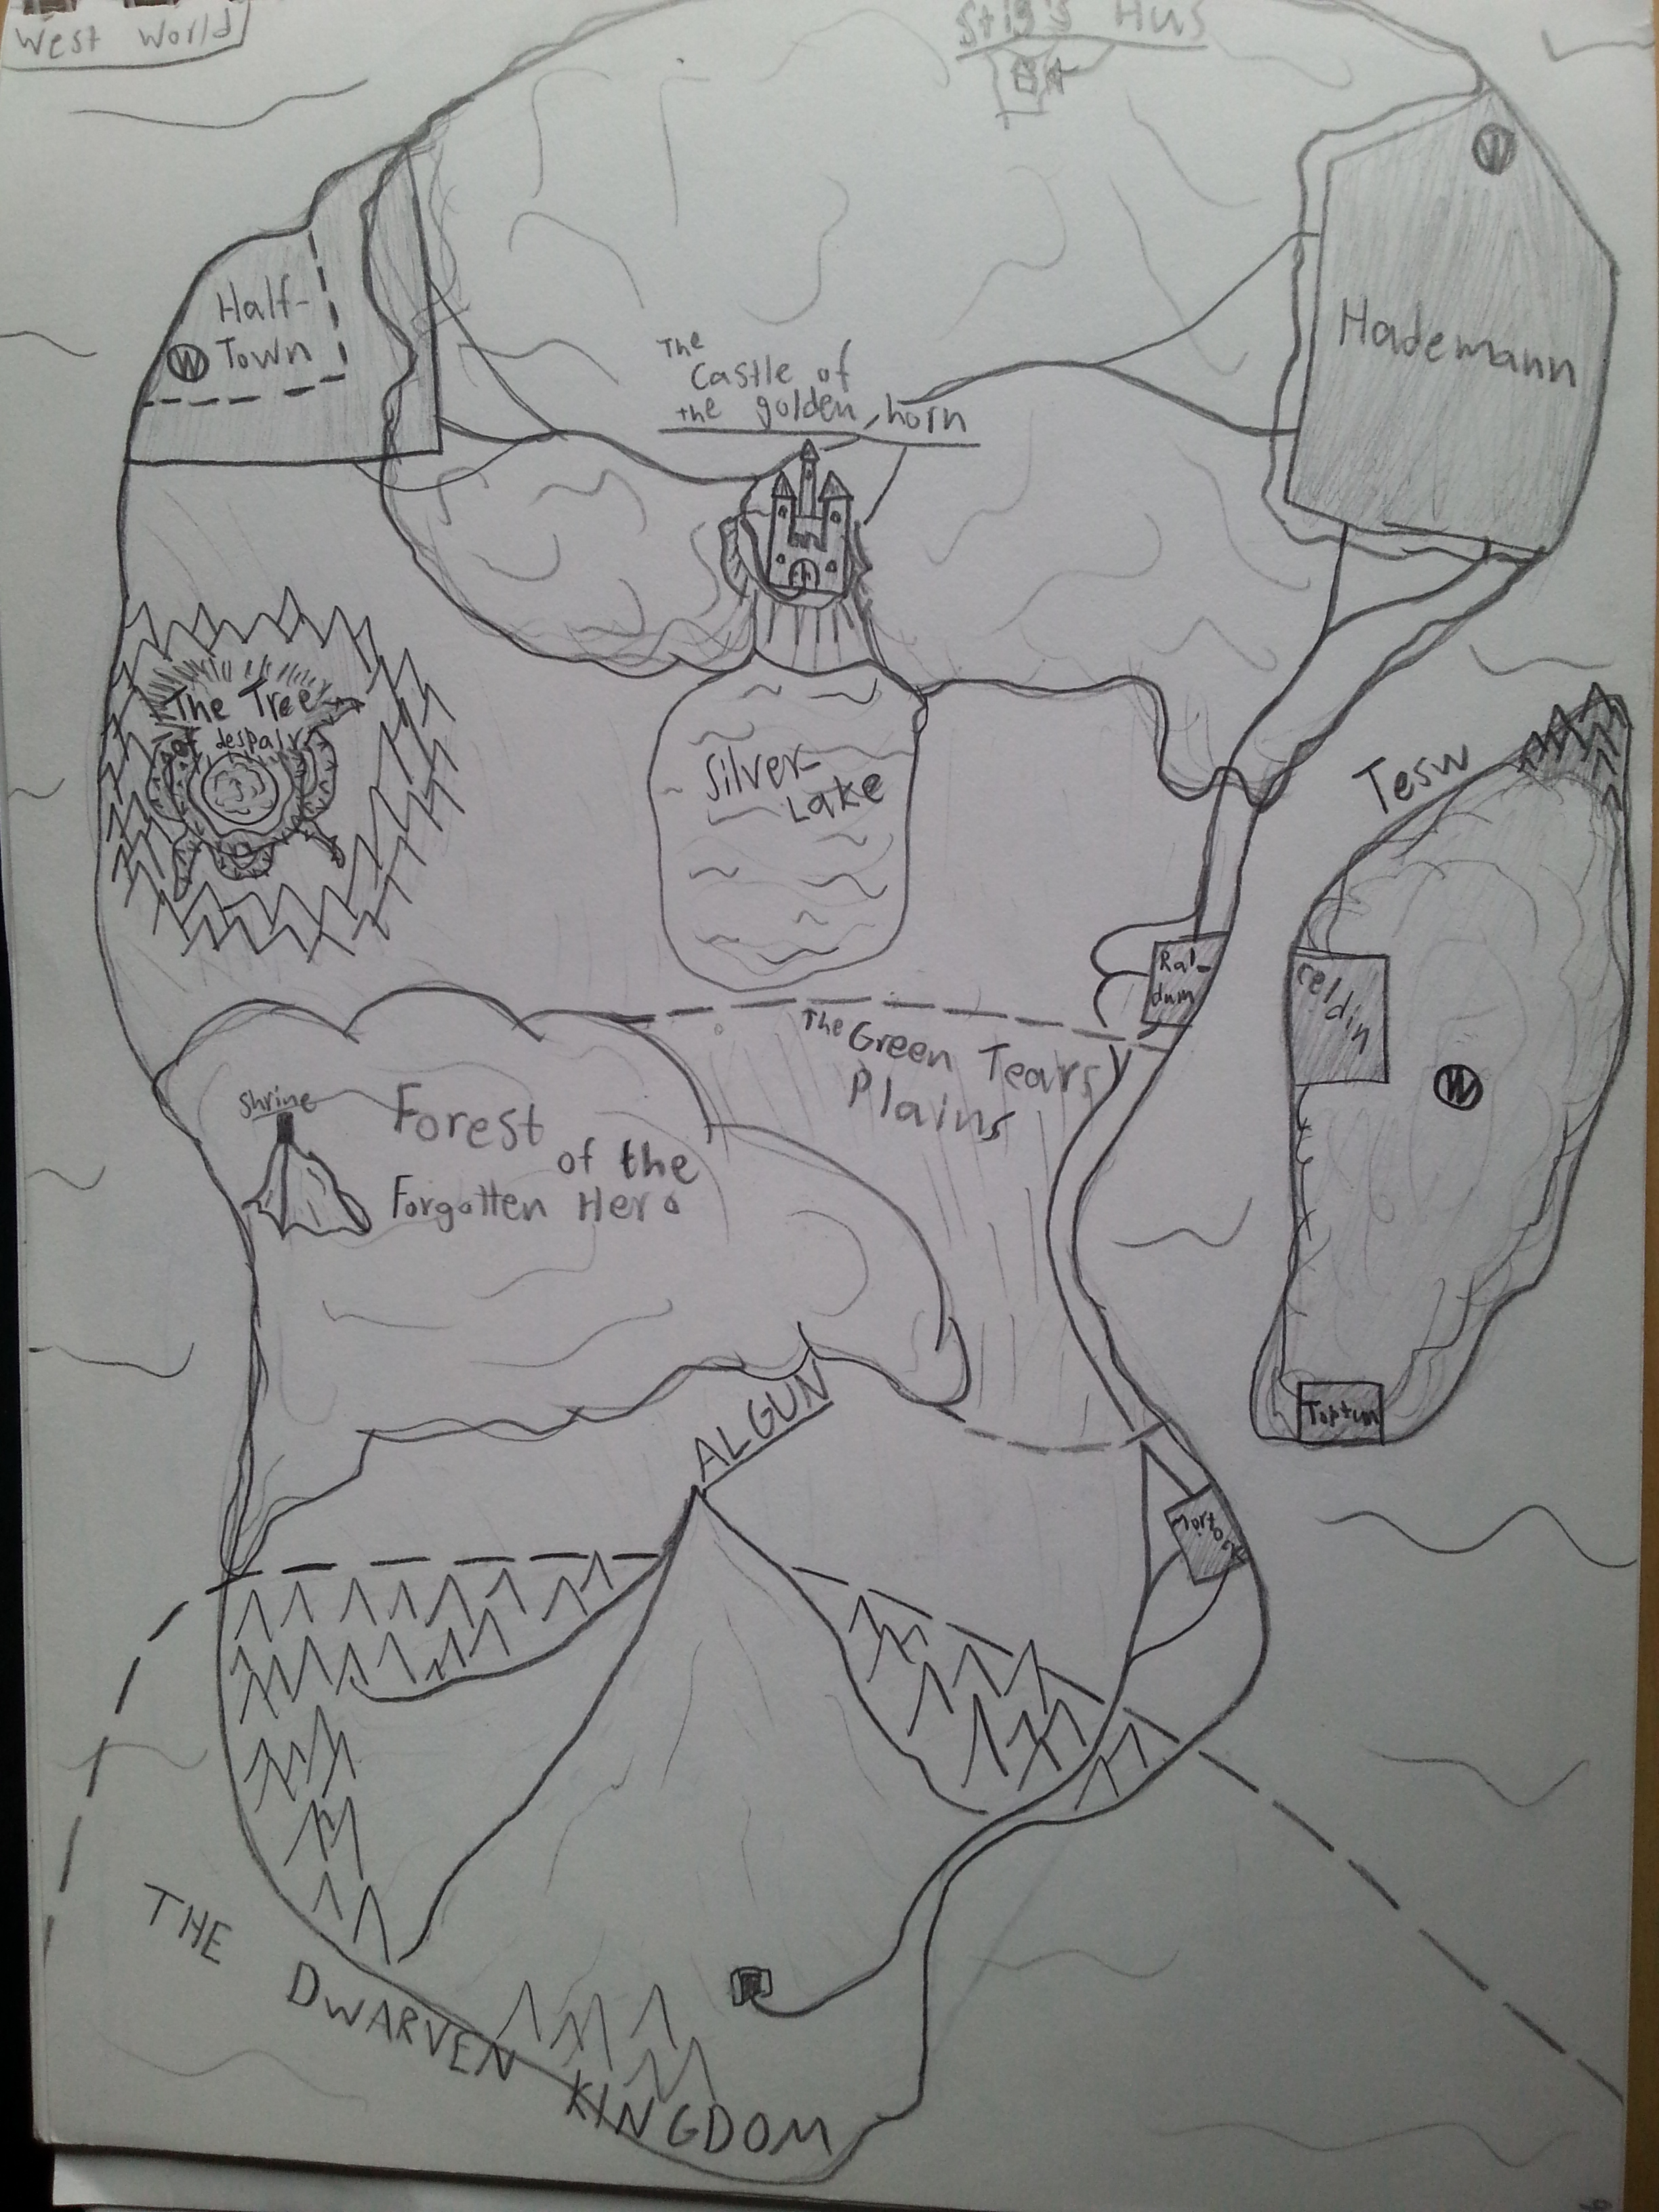 West World
Stig's Hus
W
Half-
Town
W
Hademann
The
Castle of
the golden horn
The Tree
of despair
Silver-
Lake
Tesw
Ral-
dum
Celdin
W
The Green Tears
Plains
Shrine
Forest
of the
Forgotten Hero
Toptun
ALGUN
Mortock
THE DWARVEN KINGDOM